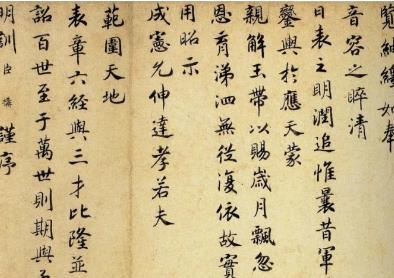 紬繹如奉
音容之睟清
日表之明潤追惟曩昔軍
鑾輿於應天蒙
親解玉帶以賜歲月飄忽
恩育涕泗無從復依故實
用昭示
成憲允伸達孝若夫
範圍天地
表章六經與三才比隆並
詔百世至于萬世則期與
明訓臣構謹序